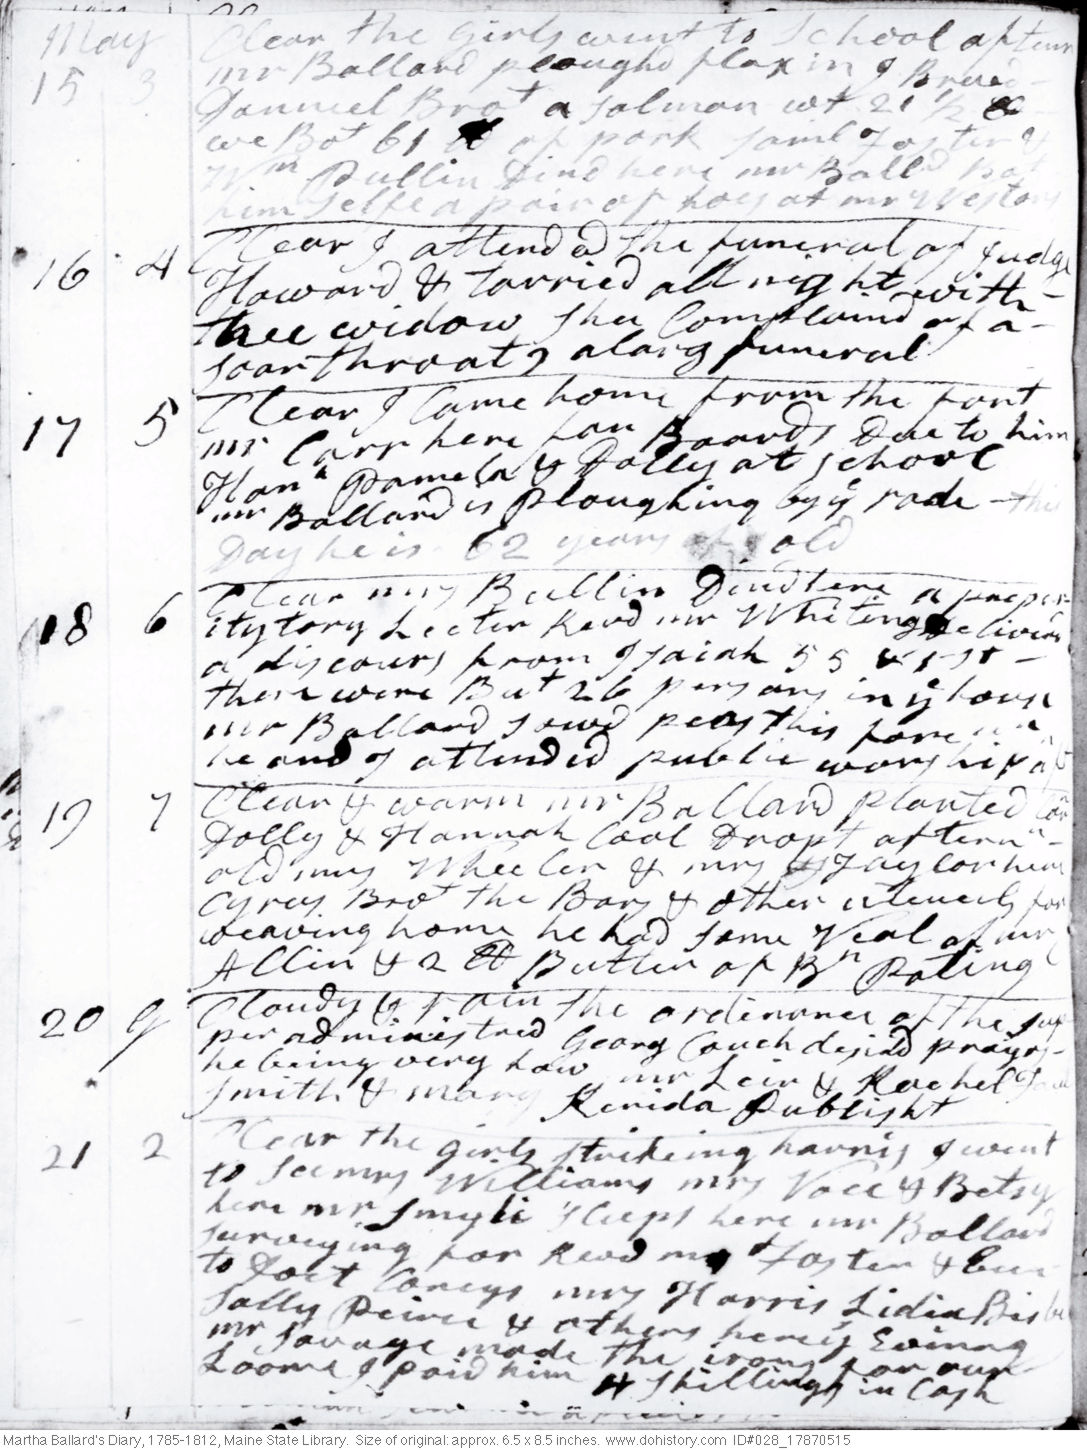 May Clear the Girls went to School aftern
15 3 mr Ballard ploughd flax in I Brued
Samuel Brot a Salmon wt 21 1/2 lb
we Bot 61 lb of pork Saml Foster &
Wm Pullin Dind here mr Balld Bot
him Selfe a pair of hoes at mr Westons
16 4 Clear I attended the funeral of Judge
Howard & tarried all night with
thee widow She Complaind of a
soar throat, a larg funeral
17 5 Clear I Came home from the fort
mr Carr here for Boards Due to him
Hanh Pamela & Dolly at School
mr Ballard is Ploughing by ye rode this
Day he is 62 years old
18 6 Clear mrs Bullin Dind here a preper
itytory Lecter Read mr Whiting Delivired
a discours from Isaiah 55 & 1st
there were But 26 persons in ye house
mr Ballard sowd peas this foren n
he and I attended public worship
19 7 Clear & warm mr Ballard planted Corn
Dolly & Hannah Cool Dropt aftern n
old mrs Wheeler & mrs Taylor here
Cyrus Brot the Bars & other utencils for
weaving home he had some Veal of mr
Allin & 2 lb Butter of Bn Poling
20 g Cloudy & rain the ordinance of the Sup
per administred Georg Couch desird prayrs
he being very Low mr Leir & Rachel
Smith & Mary Kenida Publisht
21 2 Clear the girls strikeing harnis I went
to See mrs Williams mrs Voce & Betsy
here mr Smyli Sleeps here mr Ballard
surveying for Read Foster &
to Doct Coneys mrs Harris Lidia Bisbe
Sally Peirce & others here ye Evining
mr Savage made the irons for our
Loome I paid him 4 Shillings in Cash
Martha Ballard's Diary, 1785-1812, Maine State Library. Size of original: approx. 6.5 x 8.5 inches. www.dohistory.com ID#028_17870515